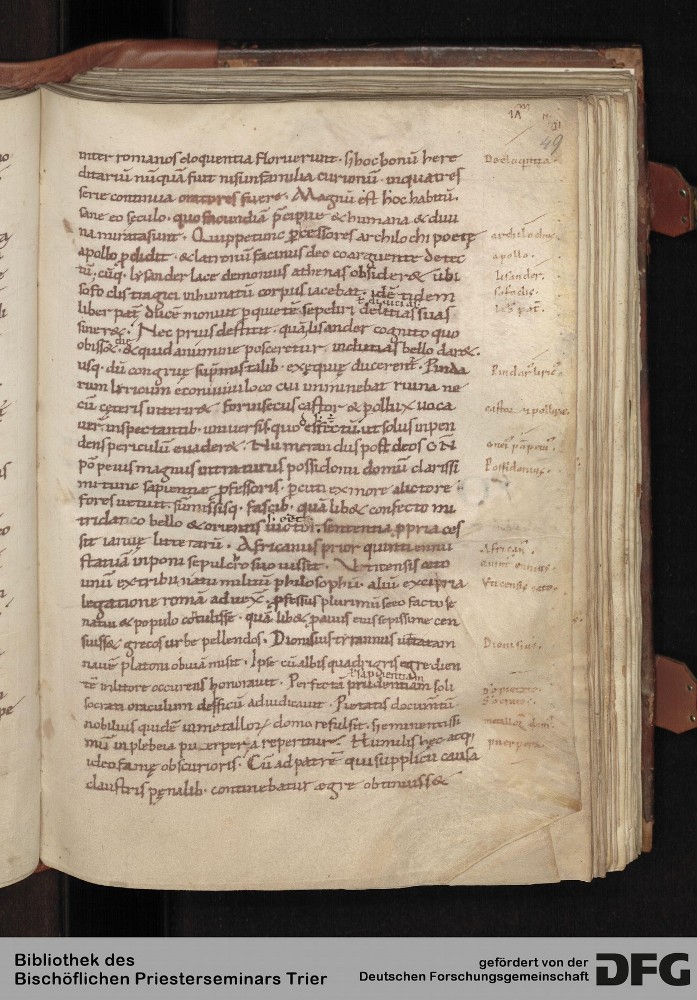 49
inter romanos eloquentia floruerunt. s; hoc bonū here
ditariū nūquā fuit nisi in familia curionū. in qua tres
serie continua oratores fuere. Magnū est hoc habitū.
sane eo seculo. quo facundia p̄cipue & humana & diui
na miratasunt. Quippe tunc p̄cessores archilochi poetę
apollo ꝓdidit. & latronū facinus deo coarguente detec
tū. cūq; lysander lacedemonius athenas obsider& ubi
sofoclis tragici inhumatū corpus iacebat. idē tidem
liber pat̄ ducē monuit ꝓ quietē sepeliri delitias suas
siner&. Nec prius destitit. quā lisander cognito quo
obiss& die & quid a numine posceretur. inducias bello dar&.
usq; dū congruę supmis talib. exequię ducerent̄. Pinda
rum lyricum e conuiuii loco cui inminebat ruina ne
cū cęteris interir& forinsecus castor & pollux uoca
uer̄ inspectantib. uniuersis. quo effectū. ut solus inpen
dens periculū euader&. Numerandus post deos GN̄
pōpeius magnus intraturus possidonii domū clarissi
mi tunc sapientię ꝓfessoris. percuti ex more a lictore
fores uetuit. sūmissisq; fascib. quālib& confecto mi
tridatico bello & orientis uictor. sententia ꝓpria ces
sit ianuę litterarū. Africanus prior quinti ennii
statuā inponi sepulcro suo iussit. Uticensis cato
unū ex tribunatu militū philosophū. aliū ex cipria
legatione romā aduex̄. ꝓfessus plurimū se eo facto se
natui & populo cōtulisse. quālib& ꝓauus eius sepissime cen
suiss& grecos urbe pellendos. Dionisius tirannus
nauē platoni obuiā misit. Ipse cū albis quadrigis egredien
tē in litore occurens honorauit. Perfectā prudentiam soli
l sapientiam
socrati oraculum adiudicauit. Pietatis documtū
nobilius quidē in metallorꝝ domo refulsit. s; eminentissi
mū in plebeia puerpera reperitur. Humilis hęc atq;
ideo famę obscurioris. Cū ad patrē qui supplicii causa
claustris pęnalib. continebatur ęgre obtinuiss&
De eloquentia.
archilochus.
apollo.
lisander.
sofocles.
lib̄ pat̄.
Pindar lyric
castor & pollux.
gneꝰ pōpeiꝰ.
Possidonius.
African.
Uticensis cato.
Dionisius.
Socrates.
puerpera.
Bibliothek des
Bischöflichen Priesterseminars Trier
gefördert von der
Deutschen Forschungsgemeinschaft
DFG